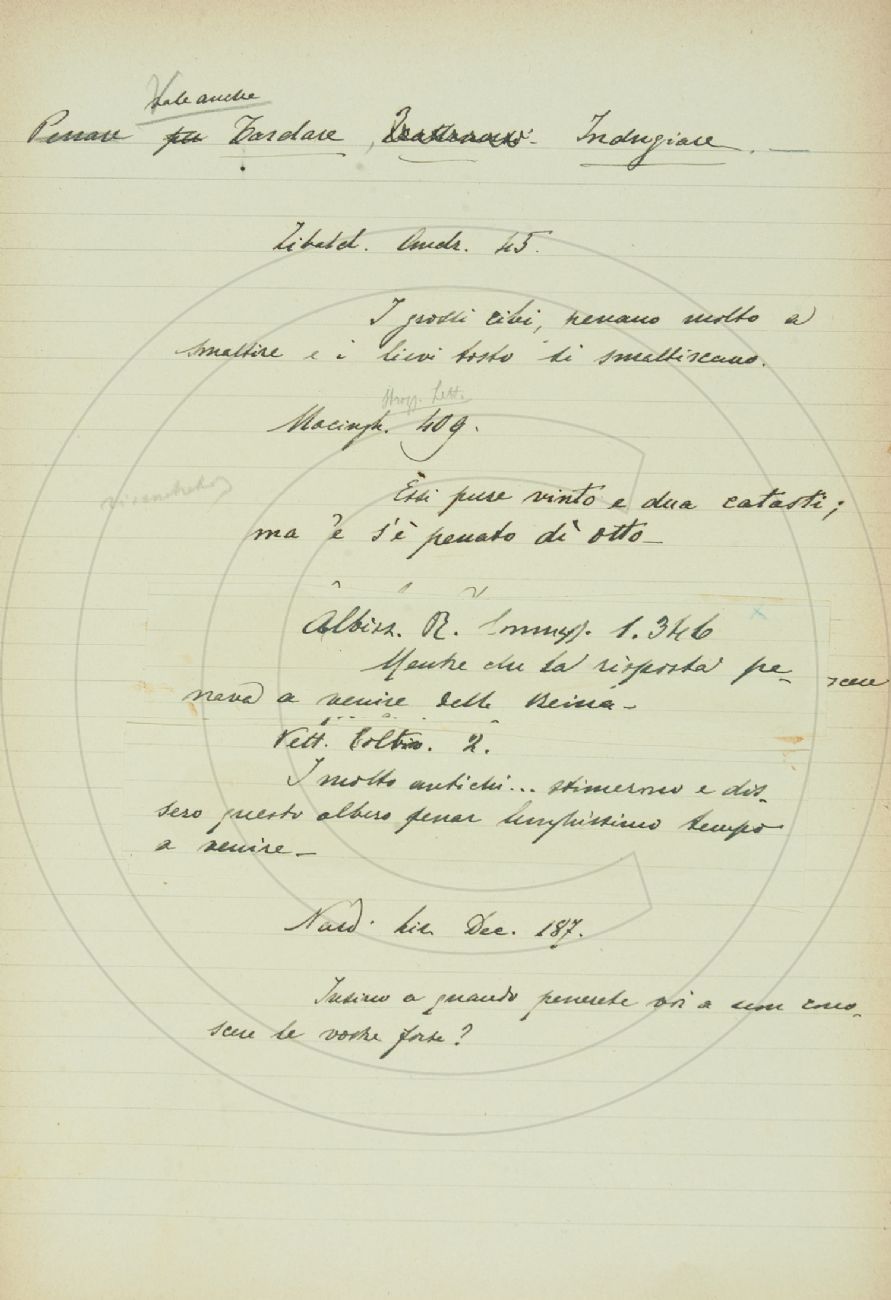 Vale anche
Penare per Tardare, Indugiare. —
Zibald. Andr. 45.
I grossi cibi, penano molto a
smaltire e i lievi tosto si smaltiscano.
Strozz. Lett.
Macingh. 409.
Èssi pure vinto e dua catasti;
ma e s'è penato dì otto —
Albizz. R. Commiss. 1. 346
Mentre che la risposta pe-
nava a venire della Reina —
Vett. Coltiv. 2.
I molto antichi... stimerono e dis-
sero questo albero penar lunghissimo tempo
a venire —
Nard. Liv. Dec. 187.
Insino a quando penerete voi a non cono-
scere le vostre forze?